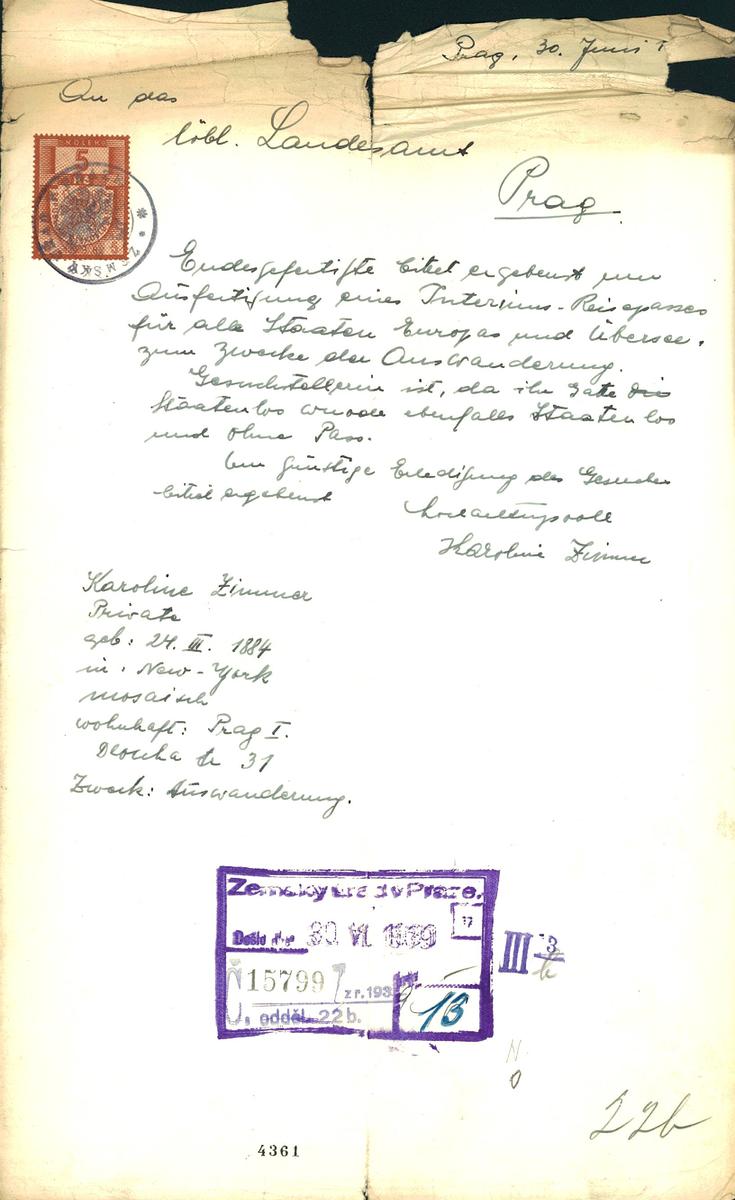 Prag, 30. Juni
An das
löbl. Landesamt
Prag
KOLEK
5
ZEMSKÝ
Endesgefertigte bittet ergebenst um
Ausfertigung eines Interims-Reisepasses
für alle Staaten Europas und Übersee,
zum Zwecke der Auswanderung.
Gesuchstellerin ist, da ihr Gatte
Staatenlos wurde ebenfalls Staatenlos
und ohne Pass.
Um günstige Erledigung des Gesuches
bittet ergebenst
hochachtungsvoll
Karoline Zimmer
Karoline Zimmer
Private
geb: 24. III. 1884
in: New-York
mosaisch
wohnhaft: Prag I.
Dlouha tr 31
Zweck: Auswanderung.
Zemský úřad v Praze.
Došlo dne 30 VI. 1939
17
Č 15799 z r. 193 9
13
odděl. 22 b.
III 3
b
N
0
22b
4361